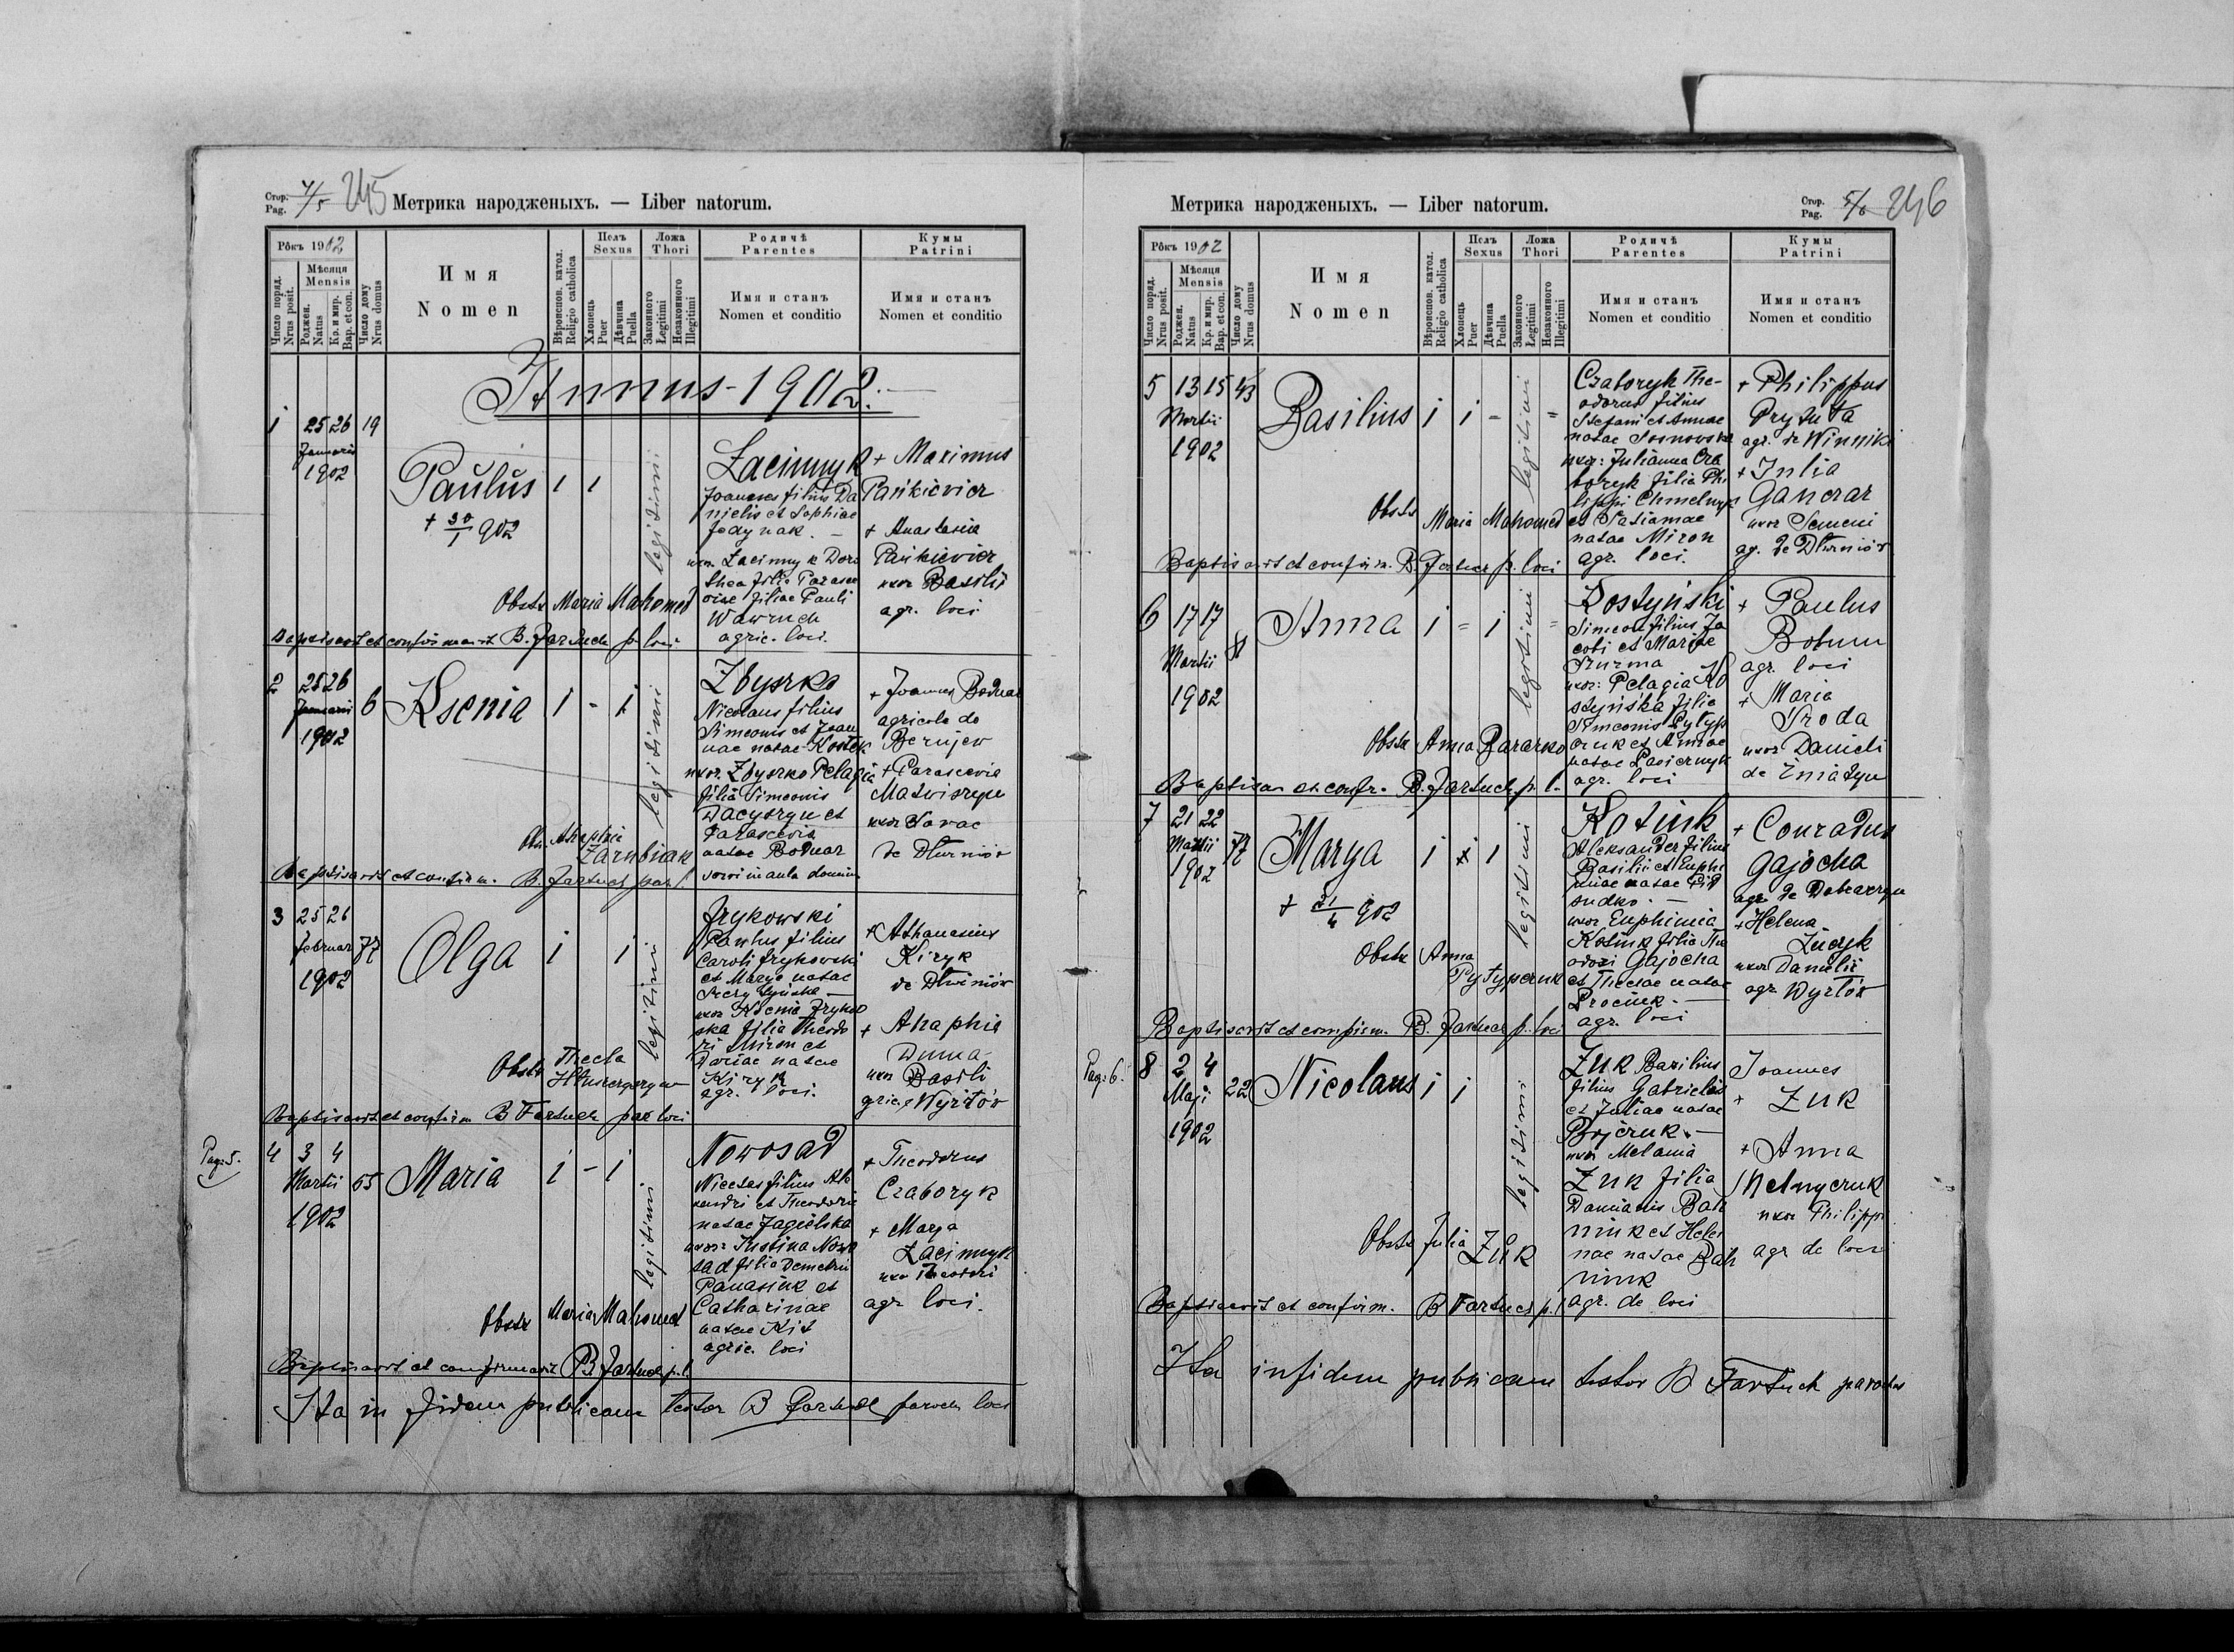 Стор. Pag. 4/5 245 Метрика народженыхъ. — Liber natorum.
Рôкъ 1902
Число поряд. Nrus posit.
Мѣсяця Mensis
Роджен. Natus
Кр. и мир. Bap. et con.
Число дому Nrus domus
Имя Nomen
Вѣроиспов. катол. Religio catholica
Полъ Sexus
Хлопець Puer
Дѣвчина Puella
Ложа Thori
Законного Legitimi
Незаконного Illegitimi
Родичѣ Parentes
Имя и станъ Nomen et conditio
Кумы Patrini
Имя и станъ Nomen et conditio
Annus-1902.—
1 25 26 19
Januarii
1902
Paulus 1 1
+ 30/1 902
legitimi
Łacinnyk
Joannes filius Da
nielis et Sophiae
Jedynak. —
uxor Łacinnyk Doro
thea filia Parasce
viae filiae Pauli
Wawruch
agric. loci.
+ Maximus
Pańkievicz
+ Anastasia
Pańkievicz
uxor Basilii
agr. loci
Obstx Maria Mahomed
Baptisavit et confirmavit B. Fartuch p. loci
2 25 26 6
Januarii
1902
Ksenia 1 - 1
legitimi
Zbyszko
Nicolaus filius
Simeonis et Joan
nae natae Kostek
uxor. Zbyszko Pelagia
filia Simeonis
et
Parascevia
natae Bodnar
+ Joannes Bodnar
agricola de
+ Parascevia
uxor Savae
de Dłużniów
Zarubiak
Baptisavit et confirm. B. Fartuch par l
3 25 26 77
Februar
1902
Olga i i
legitimi
Frykowski
Paulus filius
Caroli Frykowski
et Marya natae
uxor Ksenia Fryko
ska filia Theodo
ri Miron et
Dariae natae
Kiryk
agr. loci.
+ Athanasius
Kiryk
de Dłużniów
+ Ahaphia
Duma
uxor Basili
agric. Wyżłów
Obstx Thecla
Baptisavit et confirm B Fartuch par loci
Pag: 5.
4 3 4 55
Martii
1902
Maria i - i
legitimi
Nowosad
Nicetas filius Alex
andri et Theodoriae
natae Jagielska
uxor: Justina Nowo
sad filia Demetrii
Panasiuk et
Catharinae
natae Kit
agric. loci
+ Theodorus
Czaboryk
+ Marya
Łacinnyk
uxor Theodori
agr loci.
Obstx Maria Mahomed
Baptisavit et confirmavit B Fartuch p. l.
Ita in fidem publicam testor B Fartuch paroch loci
Метрика народженыхъ. — Liber natorum. Стор. Pag. 5/6 246
Рôкъ 1902
Число поряд. Nrus posit.
Мѣсяця Mensis
Роджен. Natus
Кр. и мир. Bap. et con.
Число дому Nrus domus
Имя Nomen
Вѣроиспов. катол. Religio catholica
Полъ Sexus
Хлопець Puer
Дѣвчина Puella
Ложа Thori
Законного Legitimi
Незаконного Illegitimi
Родичѣ Parentes
Имя и станъ Nomen et conditio
Кумы Patrini
Имя и станъ Nomen et conditio
5 13 15 43
Martii
1902
Basilius i i - =
legitimi
Czaboryk The-
odorus filius
Stefani et Annae
natae Sosnovska
uxor: Julianna Cza
boryk filia Phi
lippi
et Tatiannae
natae Miron
agr. loci.
+ Philippus
Pryszta
agr. de Winniki
+ Julia
Ganczar
uxor Semeni
ag. de Dłużniów
Obstx Maria Mahomed
Baptisavit et confirm. B. Fartuch p. loci
6 17 17
Martii
1902
Anna i = i =
legitimi
Kostyński
Simeon filius Ja
cobi et Mariae
uxor: Pelagia Ko
styńska filia
Simeonis Pytyp
czuk et Annae
agr. loci
+ Paulus
agr loci
+ Maria
Sroda
uxor Danieli
de Żniatyn
Obstx Anna
Baptisav et confr. B. Fartuch p. l.
7 21 22 77
Martii
1902
Marya i x 1
+ 21/4 902
legitimi
Kotiuk
Aleksander filius
Basilii et Euphi
miae natae Pid
sudko. —
uxor Euphimia
Kotiuk filia The
odori Gajocha
et Theclae natae
Prociuk. —
agr. loci
+ Conradus
Gajocha
+ Helena
uxor Danielis
agr Wyżłów
Obstx Anna
Pytypczuk
Baptisavit et confirm. B. Fartuch p. loci
Pag: 6.
8 2 4 22
Maji
1902
Nicolaus i i
legitimi
Żuk Basilius
filius Gabrielis
et Juliae natae
Bojczuk. —
uxor Melania
Żuk filia
Damianis Bah
niuk et Hele
nae natae Bah
niuk
agr. de loci
Joannes
+ Żuk
+ Anna
Melnyczuk
uxor Philippi
agr de loci
Obstx Julia Żuk
Baptisavit et confirm. B Fartuch p. l
Ita in fidem publicam testor B Fartuch parochus